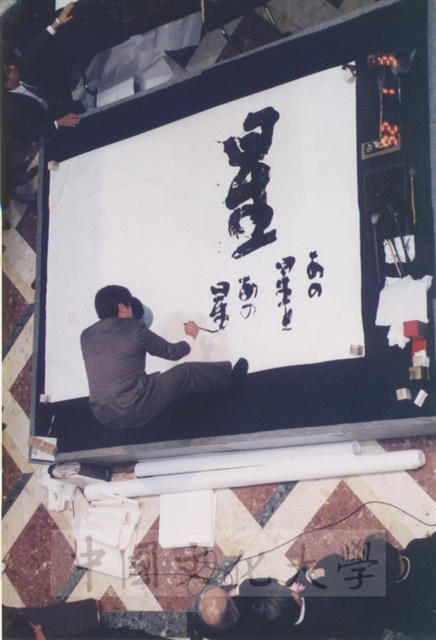 星
あの
星と
あの
星
中國文化大學